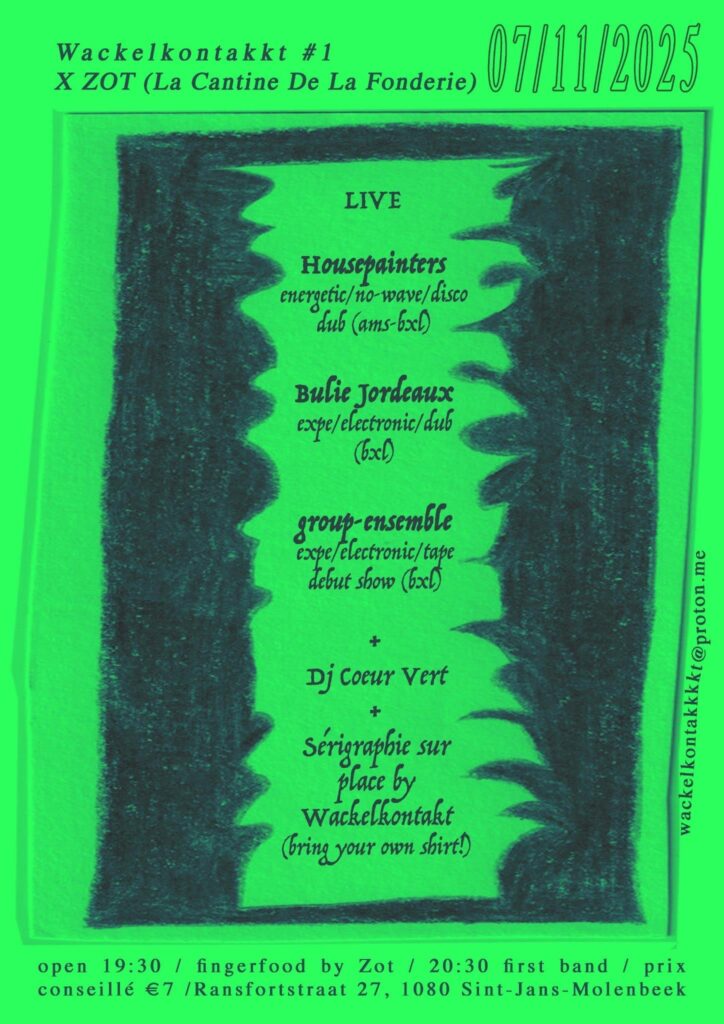 Wackelkontakkt #1
X ZOT (La Cantine De La Fonderie)
07/11/2025
LIVE
Housepainters
energetic/no-wave/disco
dub (ams-bxl)
Bulie Jordeaux
expe/electronic/dub
(bxl)
group-ensemble
expe/electronic/tape
debut show (bxl)
+
Dj Coeur Vert
+
Sérigraphie sur
place by
Wackelkontakt
(bring your own shirt!)
wackelkontakkkkt@proton.me
open 19:30 / fingerfood by Zot / 20:30 first band / prix
conseillé €7 /Ransfortstraat 27, 1080 Sint-Jans-Molenbeek